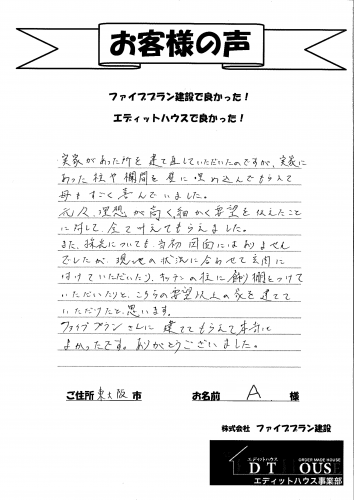 お客様の声
ファイブプラン建設で良かった！
エディットハウスで良かった！
実家があった所を建て直していただいたのですが、実家に
あった柱や欄間を壁に埋め込んでもらえて
母もすごく喜んでいました。
元々、理想が高く、細かく要望を伝えたこと
に対して、全て叶えてもらえました。
また、採光についても当初図面にはありません
でしたが、現地の状況に合わせて玄関に
付けていただいたり、キッチンの柱に飾り棚をつけて
いただいたりと、こちらの要望以上の家を建てて
いただけたと思います。
ファイブプランさんに建ててもらえて本当に
よかったです。ありがとうございました。
ご住所 東大阪 市 お名前 A. 様
株式会社 ファイブプラン建設
エディットハウス ORDER MADE HOUSE
エディットハウス事業部